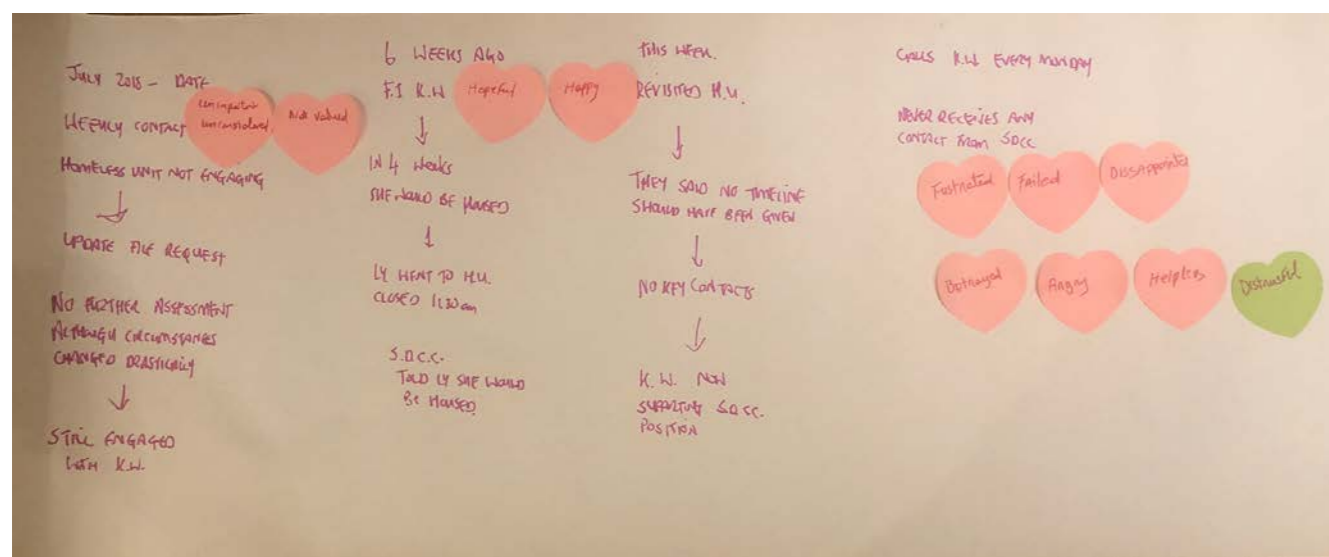 JULY 2018 - DATE
WEEKLY CONTACT
Unimportant
unconsidered.
Not valued
HOMELESS UNIT NOT ENGAGING
UPDATE FILE REQUEST
NO FURTHER ASSESSMENT
ALTHOUGH CIRCUMSTANCES
CHANGED DRASTICALLY
STILL ENGAGED
WITH K.W.
6 WEEKS AGO
F.I K.W
Hopeful
Happy
IN 4 Weeks
SHE WOULD BE HOUSED
LY WENT TO H.U.
CLOSED 11.30am
S.D.C.C.
TOLD LY SHE WOULD
BE HOUSED
THIS WEEK.
REVISITED H.U.
THEY SAID NO TIMELINE
SHOULD HAVE BEEN GIVEN
NO KEY CONTACTS
K.W. NOW
SUPPORTING S.D.C.C.
POSITION
CALLS K.W EVERY MONDAY
NEVER RECEIVES ANY
CONTACT FROM SDCC
Fustrated
Failed
Dissappointed
Betrayed
Angry
Helpless
Distrustful